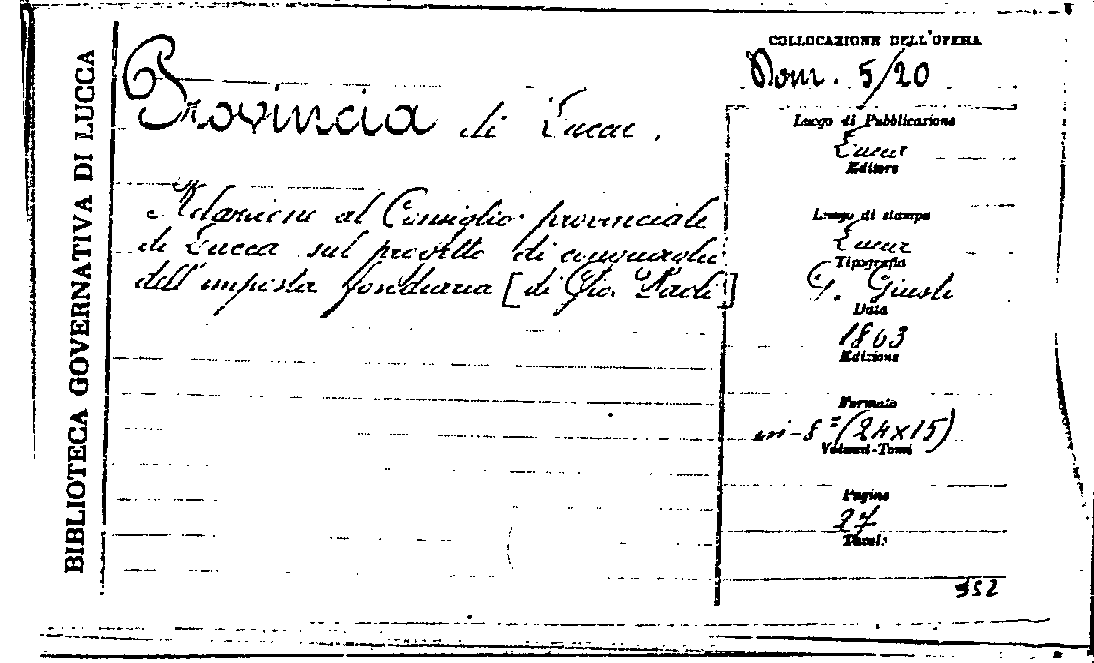 BIBLIOTECA GOVERNATIVA DI LUCCA
Provincia di Lucca.
Relazione al Consiglio provinciale
di Lucca sul progetto di conguaglio
dell'imposta fondiaria [di Gio. Paoli]
COLLOCAZIONE DELL'OPERA
5/20
Luogo di Pubblicazione
Lucca
Editore
Luogo di stampa
Lucca
Tipografia
G. Giusti
Data
1863
Edizione
Formato
in-8° (24x15)
Volumi-Tomi
Pagine
27
Tavole
352